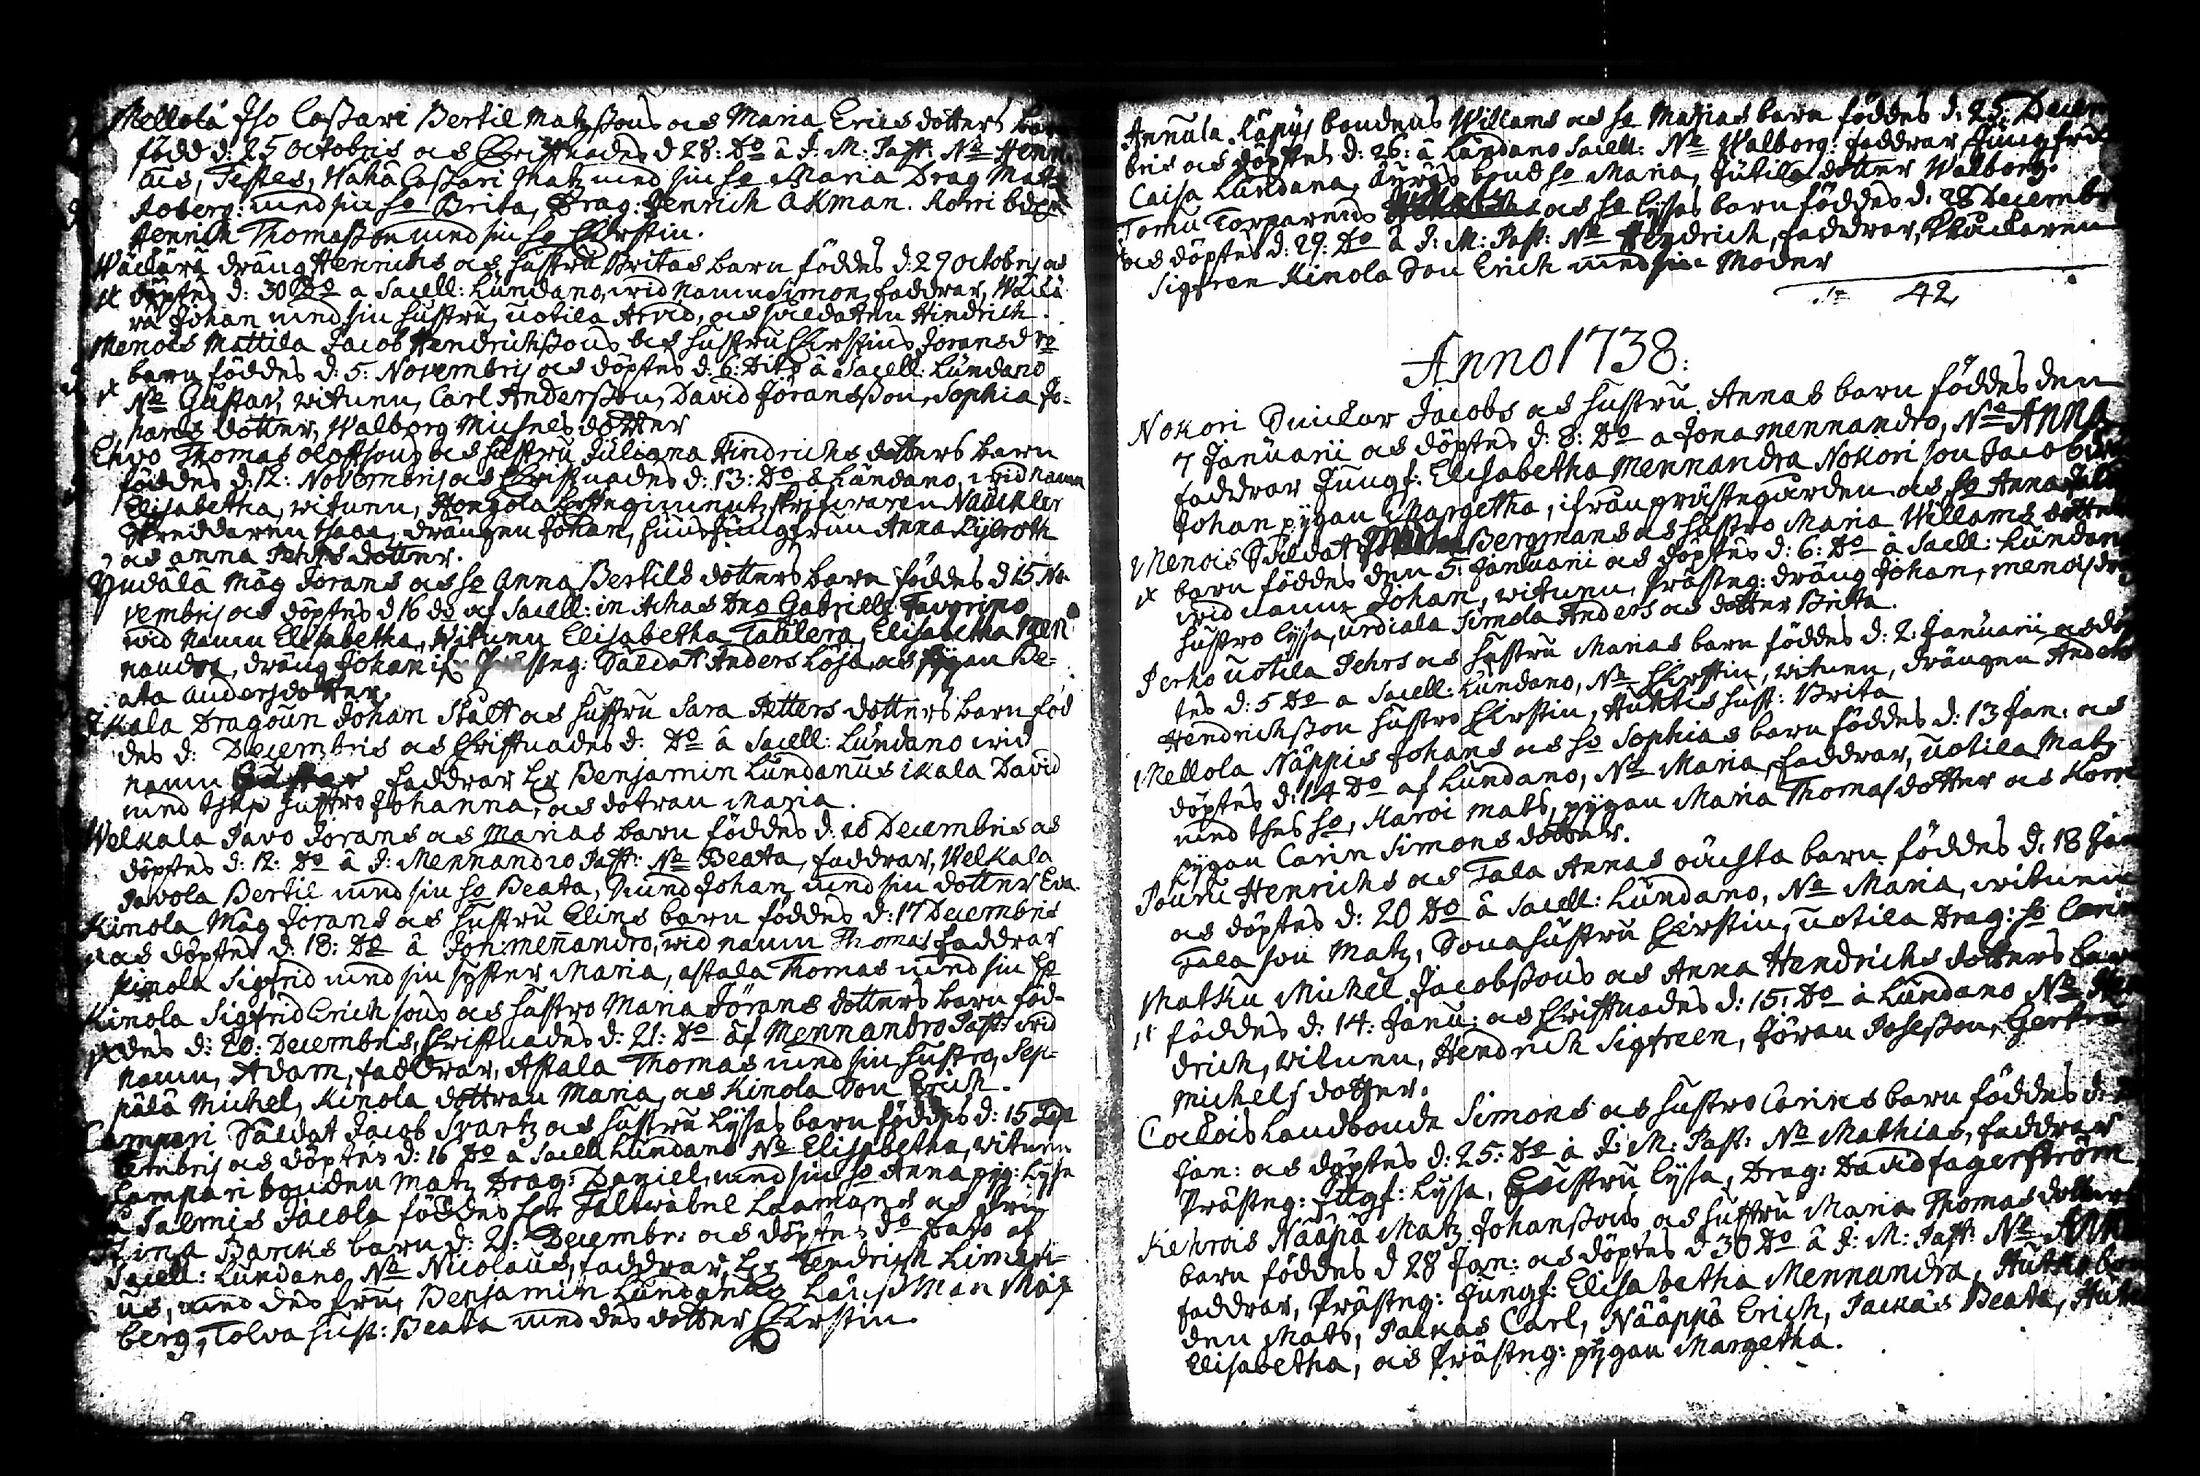 Mellola Iso Cassari Bertil Matzssons och Maria Erics dotters barn
född d: 25 Octobris och Christnades d 28: Do â J: M: Past: Ne Henri
cus, Testes, Waha Cassari Matz med sin ho Maria Drag Matz
Roberg: med sin ho Brita, Drag: Henrich Akman. Korri
Henrich Thomasson med sin ho Chirstin.
Wäckärä dräng Henrichs och hustru Britas barn föddes d: 29 Octobrj och
döptes d: 30 Do a Sacell: Lundano, wid namn Simon, faddrar, Wäckä
rä Johan med sin hustru, uotila Arvid, och soldaten Hindrich.
Menois Mattila Jacob Hendrichssons och hustru Chirstins Joransdre
barn föddes d: 5: Novembrj och döptes d: 6: Dito â Sacell: Lundano
Ne Gustav, witnen, Carl Andersson, David Joransson, Sophia Jo-
hans dotter, Walborg Michels dotter
Thomas Oloffsons och hustru Juliana Hindrichs dotters barn
föddes d: 12: Novembrj och Christnades d: 13: Do â Lundano, wid namn
Elisabetha, witnen, Hongola skrifwaren Nauchler
Skreddaren drängen Johan, Jungfrun Anna Lijlroth
och anna Pehrs dotter.
Yndälä Måg Jorans och ho Anna Bertils dotters barn föddes d 15 No-
vembrj och döptes d 16 do af Sacell: in Achas Dno Gabriele Favorino
wid namn Elisabetha, Witnen Elisabetha Tahlera, Elisabetha Men
nandra, dräng Johan Prästeg: Saldat Anders Losa, och pygan Be-
ata Andersdotter.
Ikala Dragoun Johan Stålt och hustru Sara Petters dotters barn föd
des d: Decembris och Christnades d: Do â Sacell: Lundano wid
namn Gustav faddrar Hr Benjamin Lundanus ikala David
med thes hustro Johanna, och dotran Maria.
Welkala Pavo Jorans och Marias barn föddes d: 10 Decembris och
döptes d: 12: Do â J: Mennandro Past: Ne Beata, faddrar, Welkala
Pavola Bertil med sin ho Beata, Sund Johan med sin dotter Eva.
Kinola Måg Jorans och hustru Elins barn föddes d: 17 Decembris
och döptes d: 18: Do â Joh: mennandro, wid namn Thomas faddrar
Kinola Sigfrid med sin syster Maria, astala Thomas med sin ho
Kinola Sigfrid Erichsons och hustro Maria Jörans dotters barn föd-
des d: 20: Decembris, Christnades d: 21: Do af Mennandro Past: wid
namn, Adam, faddrar, Astala Thomas med sin hustro, Sep-
pälä Michel, Kinola dottran Maria, och Kinola Son Erich.
Campari Saldat Jacob Svartz och hustru Lysas barn föddes d: 15
tembrij och döptes d: 16 Do a Sacell Lundano Ne Elisabetha, witnen
Campari bonden Matz Drag: Daniel, med sin ho Anna pyg: Lysa
â Salmis Jacola föddes Hr Fältwäbel Laamans och Fru
Stina Barcks barn d: 21: Decembr: och döptes Do Dato af
Sacell: Lundano Ne Nicolaus, faddrar, Hr Hendrich Limati-
us, med des fru, Benjamin Lundanus Länssman Maj
berg, Tolva hust: Beata med des dotter Chirstin.
Annula Räpys bondens Willams och ho Marias barn föddes d: 25: Decem
bris och döptes d: 26: â Lundano Sacell: Ne Walborg: faddrar Jungfru
Caisa Lundana, Kyrös bond ho Maria, Jutila dotter Walborg.
Tomu Torparens och ho Lysas barn föddes d: 28 Decembr
och döptes d: 29: Do â J: M: Past: Ne Hendrich, faddrar, Klåckaren
Sigfren Kinola Son Erich med sin Moder
42
Anno 1738:
Nokori Snickar Jacobs och hustru Annas barn föddes den
7 Januarii och döptes d: 8: Do a Jona mennandro, Ne Anna
faddrar Jungf: Elisabetha Mennandra Nokori son Jacob
Johan pygan Margetha, ifrån prästegården och ho Anna
Menois Saldat Bergmans och hustro Maria Willams dotters
barn föddes den 5: Januarii och döptes d: 6: Do â Sacell: Lundano
wid namn Johan, witnen, Prästeg: dräng Johan, menois
hustro Lyssa, urdiala Simola Anders och dotter Britta.
Perho uotila Pehrs och hustru Marias barn föddes d: 2: Januarii och döp
tes d: 5 Do a Sacell: Lundano, Ne Chirstin, witnen, drängen Anders
Hendrichsson hustro Chirstin, Huhtis hust: Brita
Mellola Näppis Johans och ho Sophias barn föddes d: 13 Jan: och
döptes d: 14 Do af Lundano, Ne Maria, faddrar, uotila Matz
med thes ho, Karoi Mats, pygan Maria Thomasdotter och Korri
Pygan Carin Simons dotter.
Pouru Henrichs och Tala Annas oächta barn föddes d: 18 Jan
och döptes d: 20 Do â Sacell: Lundano, Ne Maria, witnen
Tala son Matz, Sonahustru Chirstin, uotila Drag: ho Carin
Matku Michel Jacobssons och Anna Hendrichs dotters barn
föddes d: 14: Janu: och Christnades d: 15: Do â Lundano Ne Hen
drich, witnen, Hendrich Sigfreen, Jöran Josefsson, Gertru
Michels dotter.
Cocois Landbonde Simons och hustro Carins barn föddes d:
Jan: och döptes d: 25: Do â J: M: Past: Ne Mathias, faddrar
Prästeg: Jugf: Lyssa, Hustru Lyssa, Drag: David fagerström
Kehrois Nääpä Matz Johanssons och hustru Maria Thomas dotters
barn föddes d 28 Jan: och döptes d 30 Do â J: M: Past: Ne Anna
faddrar, Prästeg: Jungf: Elisabetha Mennandra, Huhti bon
den Mats, Packas Carl, Nääppä Erich, Packas Beata, Huhti
Elisabetha, och Prästeg: pygan Margetha.